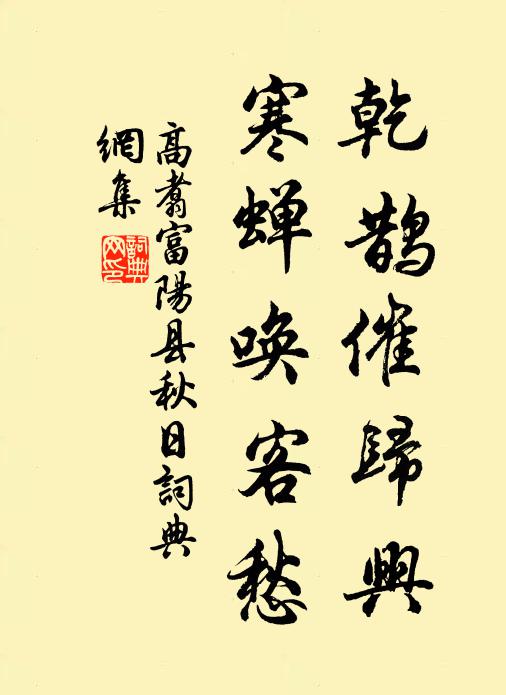 乾鹊催歸興
寒蝉唤客愁
高翥富陽县秋日詞典
網集
詞典
网印